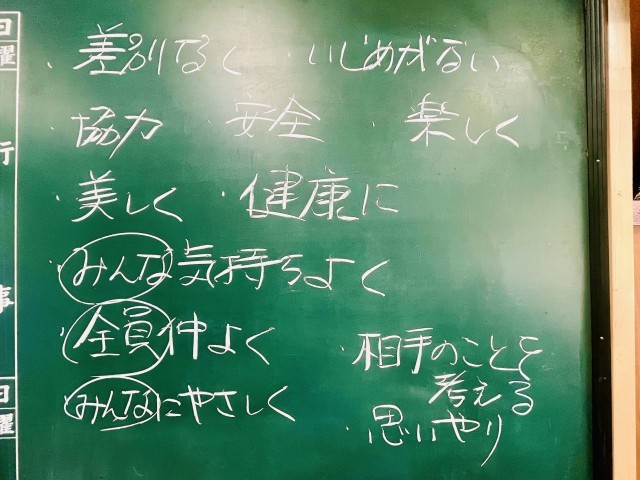 ・差別なく ・いじめがない
・協力 ・安全 ・楽しく
・美しく ・健康に
・みんな気持ちよく
・全員仲よく
・みんなにやさしく
・相手のことを
考える
・思いやり
日
曜
行
事
日
曜